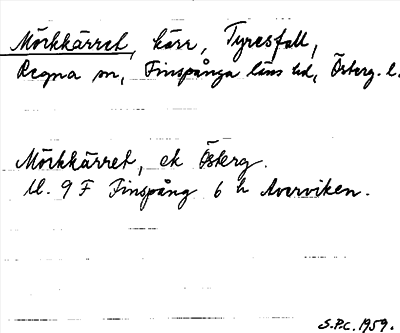 Mörkkärret, kärr, Tyresfall,
Regna sn, Finspånga läns hd, Österg. l.
Mörkkärret, ek Österg.
Bl. 9 F Finspång 6 h Averviken.
S.P.C. 1959.